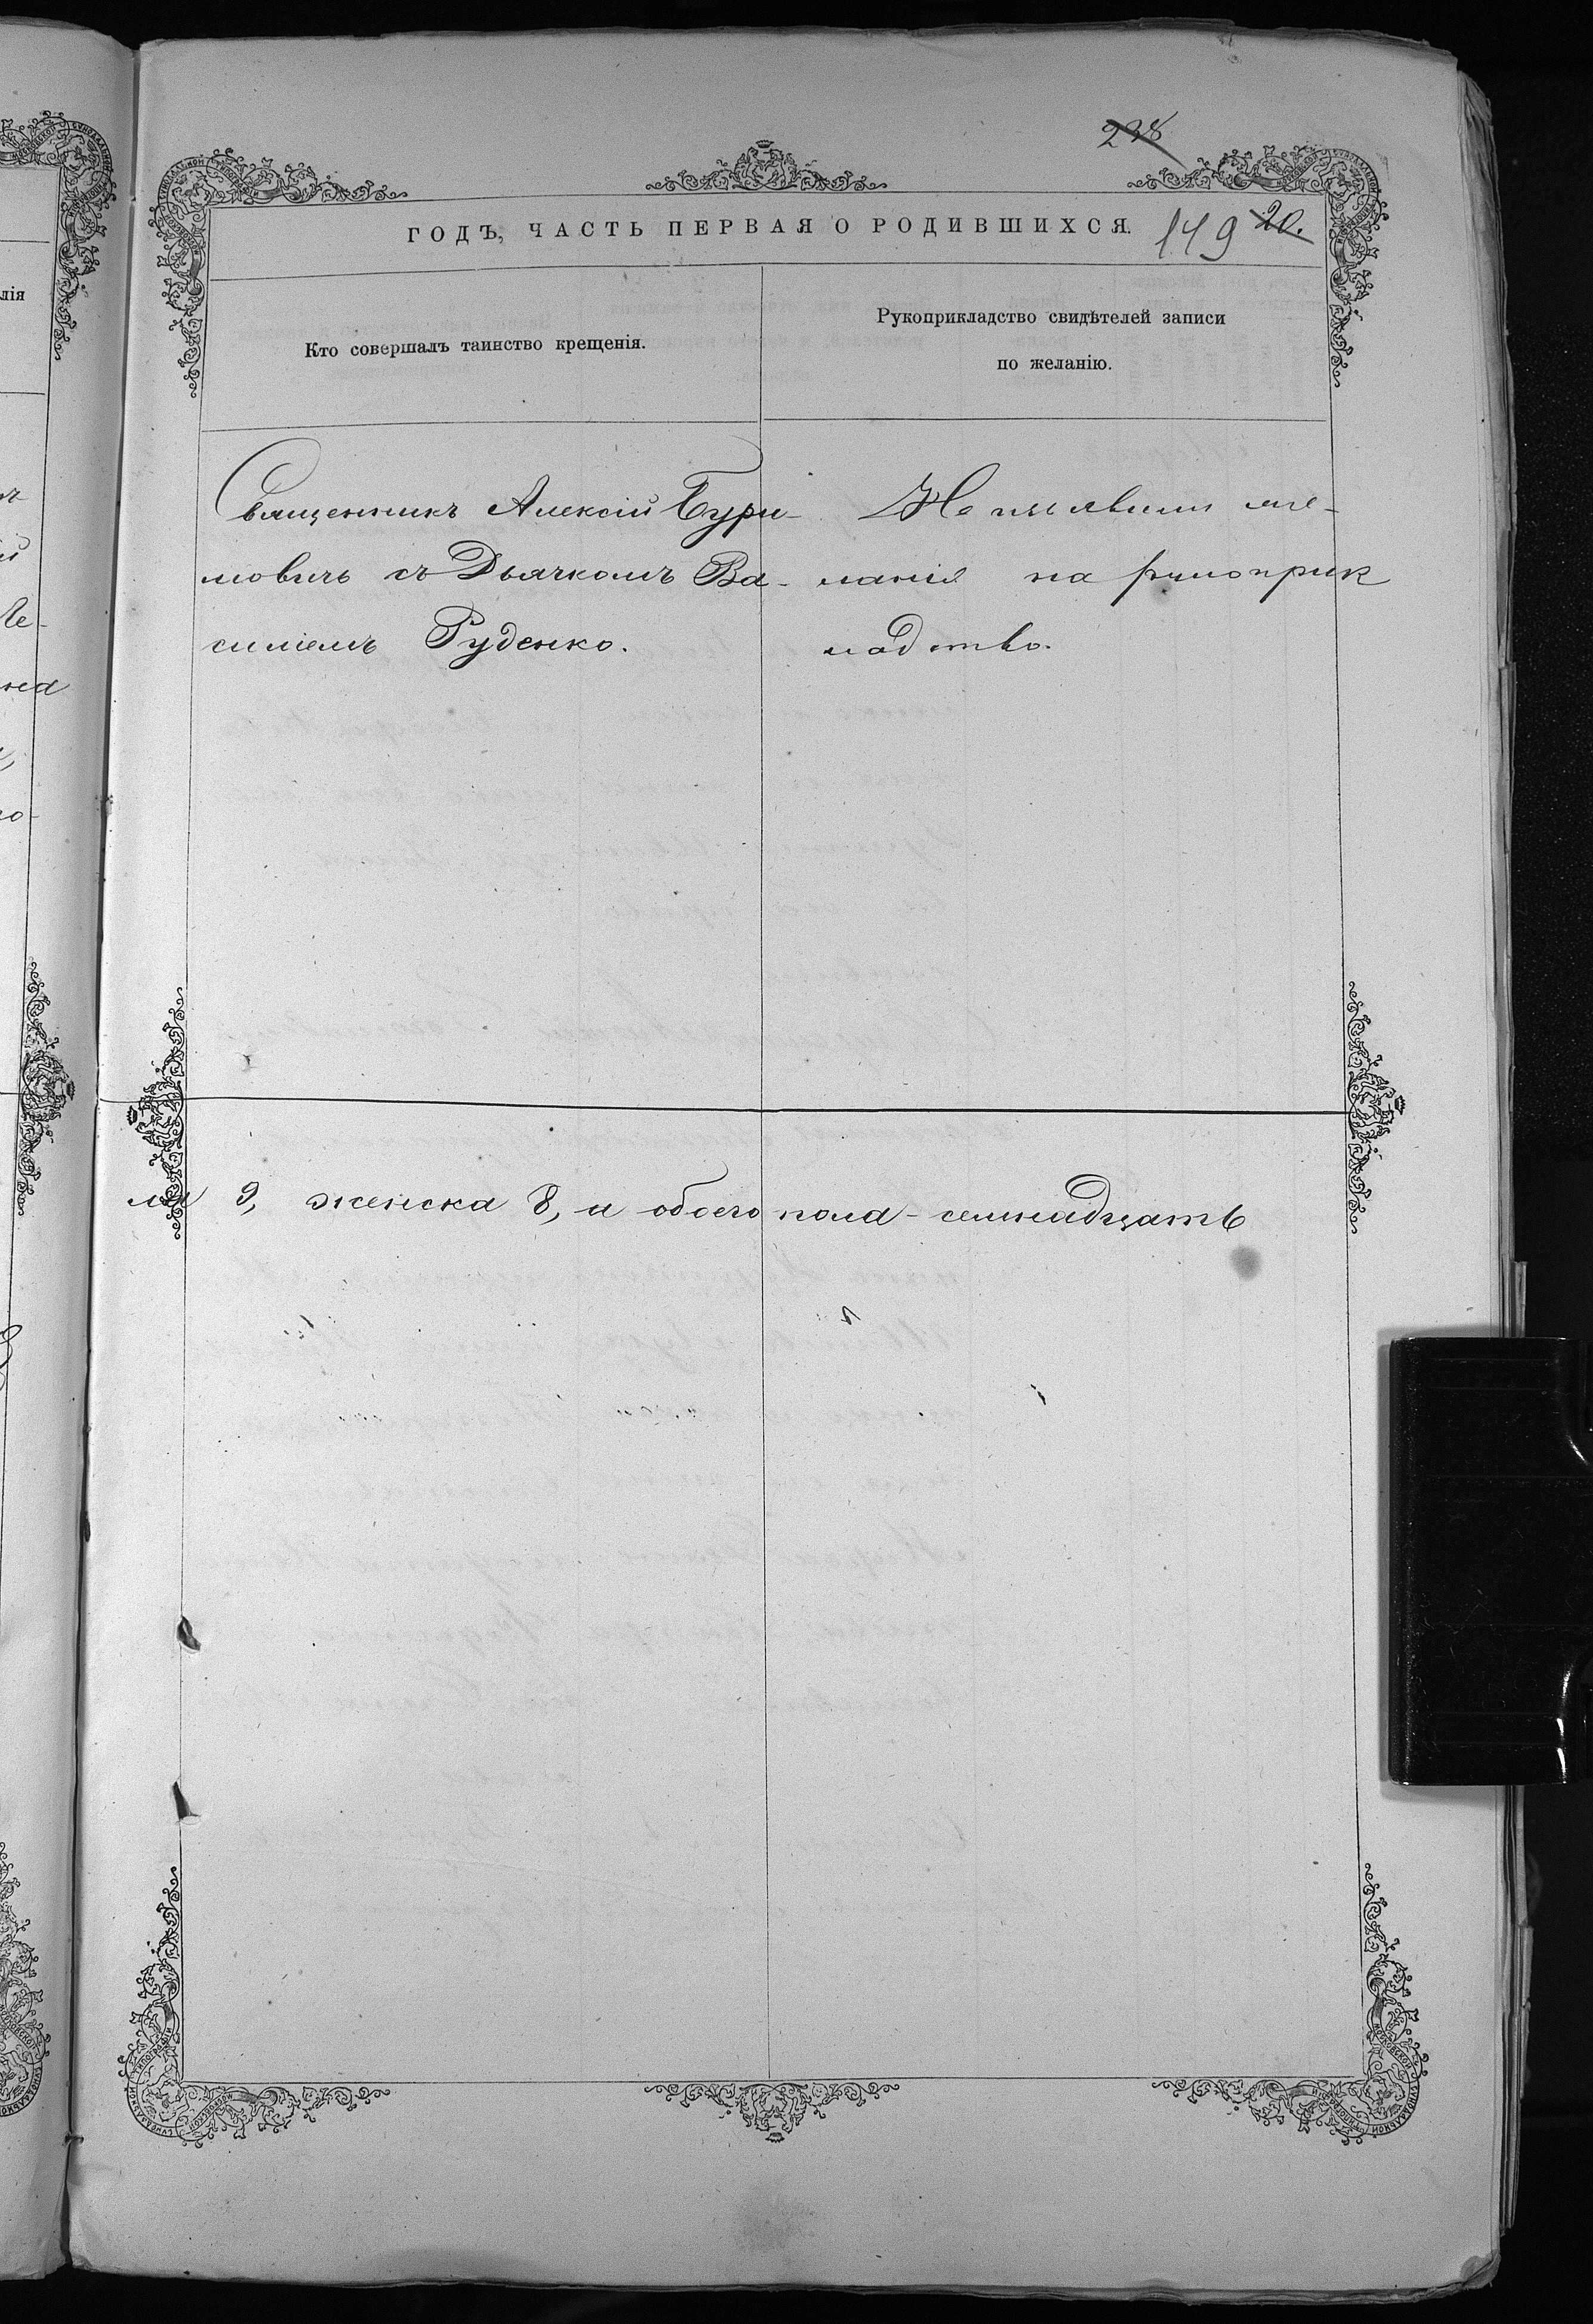 238
ГОДЪ, ЧАСТЬ ПЕРВАЯ О РОДИВШИХСЯ. 149 20.
Кто совершалъ таинство крещенія.
Рукоприкладство свидѣтелей записи
по желанію.
Священникъ Алексій Бури-
мовичъ съ Дьячкомъ Ва-
силіемъ Руденко.
Не изъявили же-
ланія на рукоприк
ладство.
9, женска 8, и обоего пола - семнадцать
лія
на